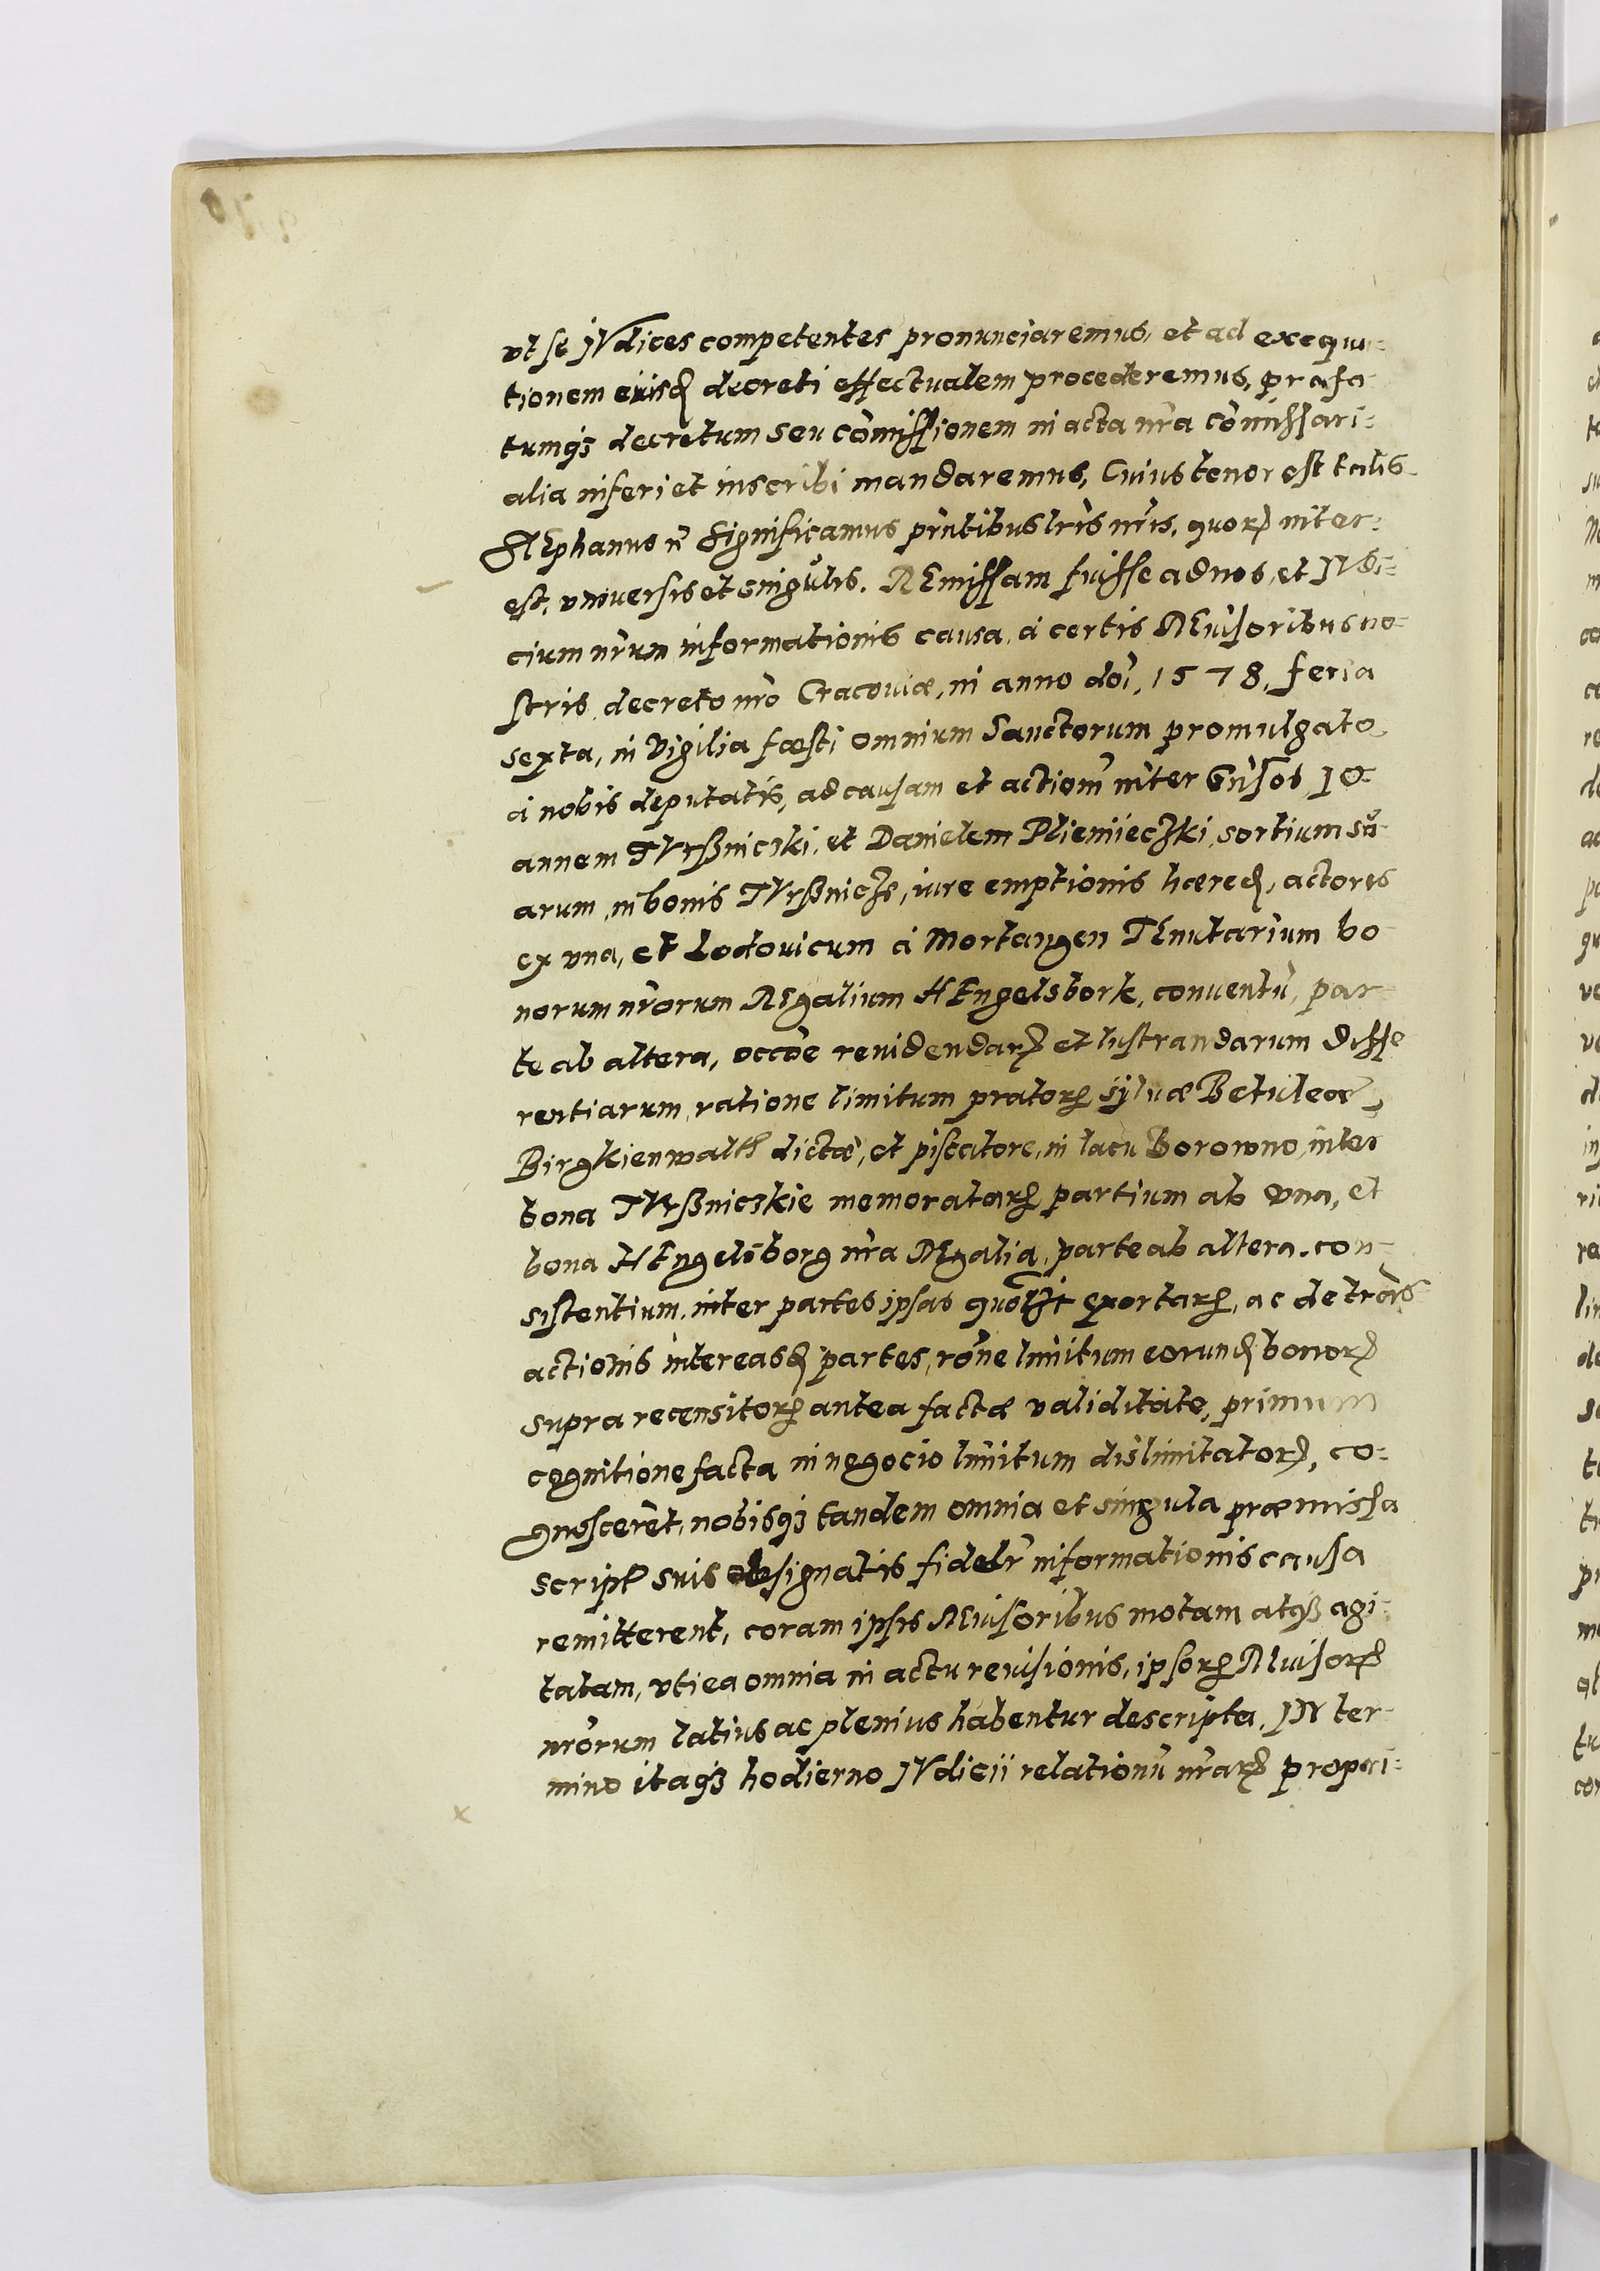 vt se IVdices competentes pronunciaremus, et ad exequu-
tionem eiusđ decreti effectualem procederemus, præfa-
tumqȝ decretum seu com̃issionem in acta nr̃a com̃issari-
alia inseri et inscribi mandaremus, Cuius tenor est talis
STEphanus ⁊c̃ Significamus pñtibus lr̃is nr̃is, quorꝝ inter-
est, vniuersis et singulis. REmissam fuisse ad nos, et IVdi-
cium nr̃um informationis causa, à certis REuisoribus no-
stris, decreto nr̃o Cracouiæ, in anno dñi, 1578, feria
sexta, in Vigilia fæsti omnium Sanctorum promulgato
à nobis deputatis, ad causam et actionẽ inter Gñsos IO-
annem TVrßnicski, et Danielem Plieniieczki, sortium su-
arum, in bonis TVrßnicze, iure emptionis hæređ, actores
ex vna, et Lodouicum à Mortangen TEnutarium bo-
norum nr̃orum REgalium HEngelsbork, conuentũ, par-
te ab altera, occõe reuidendarꝝ et lustrandarum diffe
rentiarum, ratione limitum pratorꝝ syluæ Betuleæ,
Birgkienwalth dictæ, et piscatore, in lacu Borowno, inter
bona TVrßnicskie memoratarꝝ partium ab vna, et
bona HEngelsborg nr̃a REgalia, parte ab altera. con-
sistentium, inter partes ipsas exortarꝝ, ac de trãs
actionis inter easđ partes, rõne limitum eorunđ bonorꝝ
supra recensitorꝝ antea factæ validitate, primum
cognitione facta in negocio limitum dislimitatorꝝ, co-
gnoscerẽt, nobisqȝ tandem omnia et singula præmissa
script̃ suis obsignatis fidelr̃ informationis causa
remitterent, coram ipsis REuisoribus motam atqȝ agi-
tatam, vti ea omnia in actu reuisionis, ipsorꝝ REuisorꝝ
nr̃orum latius ac plenius habentur descripta, IN ter-
mino itaqȝ hodierno IVdicii relationũ nr̃arꝝ propri-